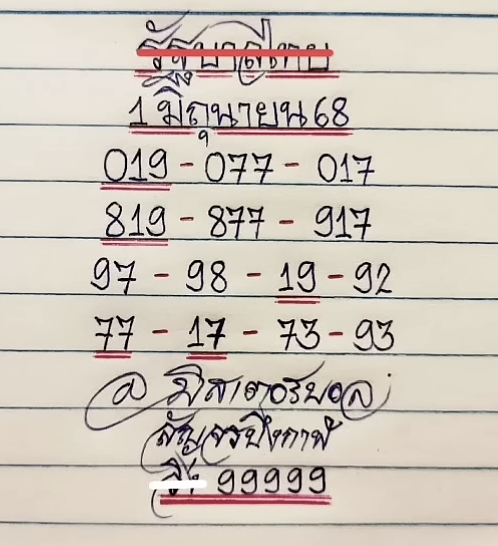 รัฐบาลไทย
1 มิถุนายน 68
019 - 077 - 017
819 - 877 - 917
97 - 98 - 19 - 92
77 - 17 - 73 - 93
@ มิสเตอร์บอล
สัญจรบึงกาฬ
99999